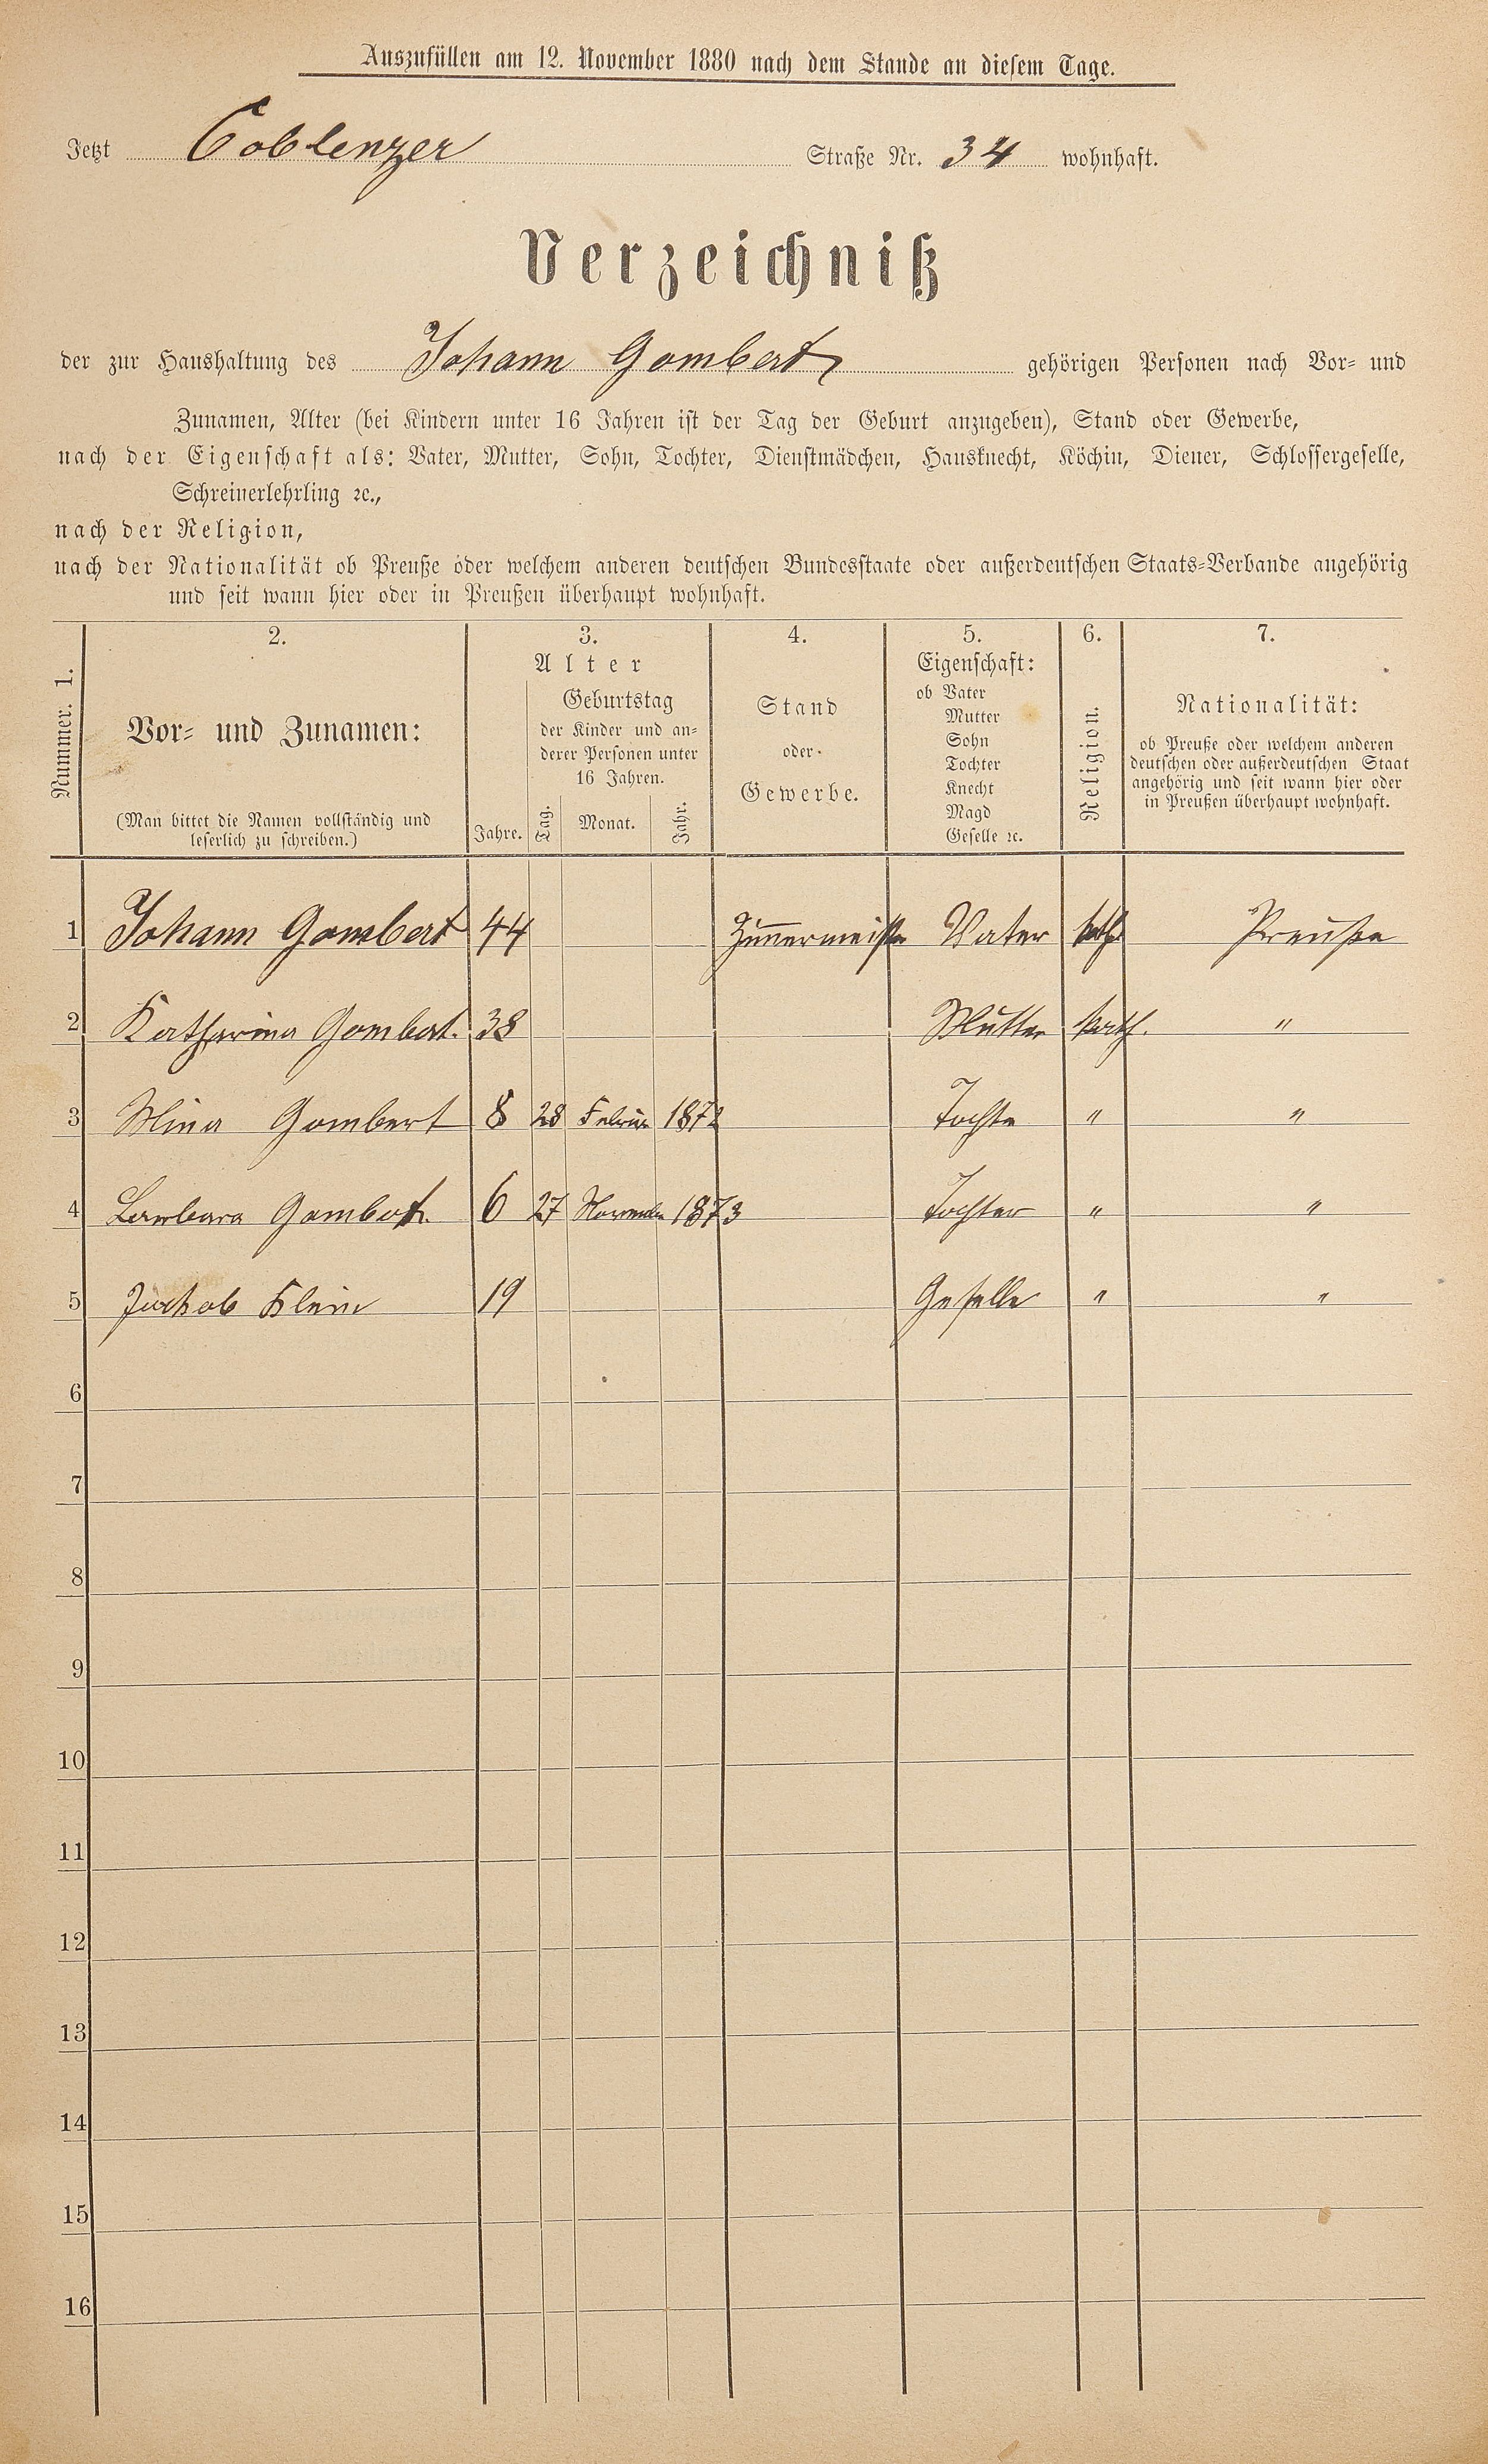 Auszufüllen am 12. November 1880 nach dem Stande an diesem Tage.
Jetzt Coblenzer Straße Nr. 34 wohnhaft.
Verzeichniß
der zur Haushaltung des Johann Gombert gehörigen Personen nach Vor- und
Zunamen, Alter (bei Kindern unter 16 Jahren ist der Tag der Geburt anzugeben), Stand oder Gewerbe,
nach der Eigenschaft als: Vater, Mutter, Sohn, Tochter, Dienstmädchen, Hausknecht, Köchin, Diener, Schlossergeselle,
Schreinerlehrling ꝛc.,
nach der Religion,
nach der Nationalität ob Preuße oder welchem anderen deutschen Bundesstaate oder außerdeutschen Staats-Verbande angehörig
und seit wann hier oder in Preußen überhaupt wohnhaft.
Nummer. 1.
2.
Vor- und Zunamen:
(Man bittet die Namen vollständig und
leserlich zu schreiben.)
3.
Alter
Jahre.
Geburtstag
der Kinder und an-
derer Personen unter
16 Jahren.
Tag. Monat. Jahr.
4.
Stand
oder
Gewerbe.
5.
Eigenschaft:
ob Vater
Mutter
Sohn
Tochter
Knecht
Magd
Geselle ꝛc.
6.
Religion.
7.
Nationalität:
ob Preuße oder welchem anderen
deutschen oder außerdeutschen Staat
angehörig und seit wann hier oder
in Preußen überhaupt wohnhaft.
1 Johann Gombert 44 Zimmermeister Vater kath. Preuße
2 Katharina Gombert. 38 Mutter kath. "
3 Mina Gombert 8 28 Februar 1872 Tochter " "
4 Barbara Gombert. 6 27 November 1873 Tochter " "
5 Jackob Klein 19 Geselle " "
6
7
8
9
10
11
12
13
14
15
16